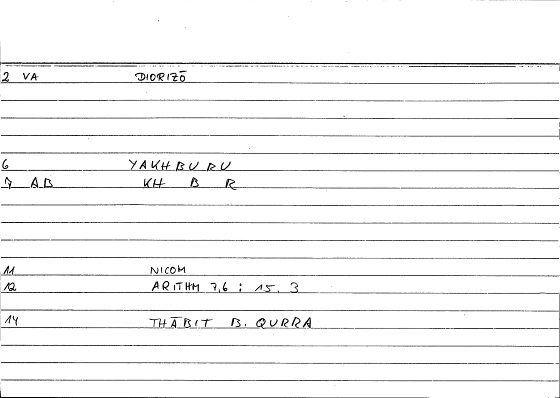 2 VA DIORIZŌ
6 YAKHBURU
7 AB KH B R
11 NICOM
12 ARITHM 7,6 : 15. 3
14 THĀBIT B. QURRA